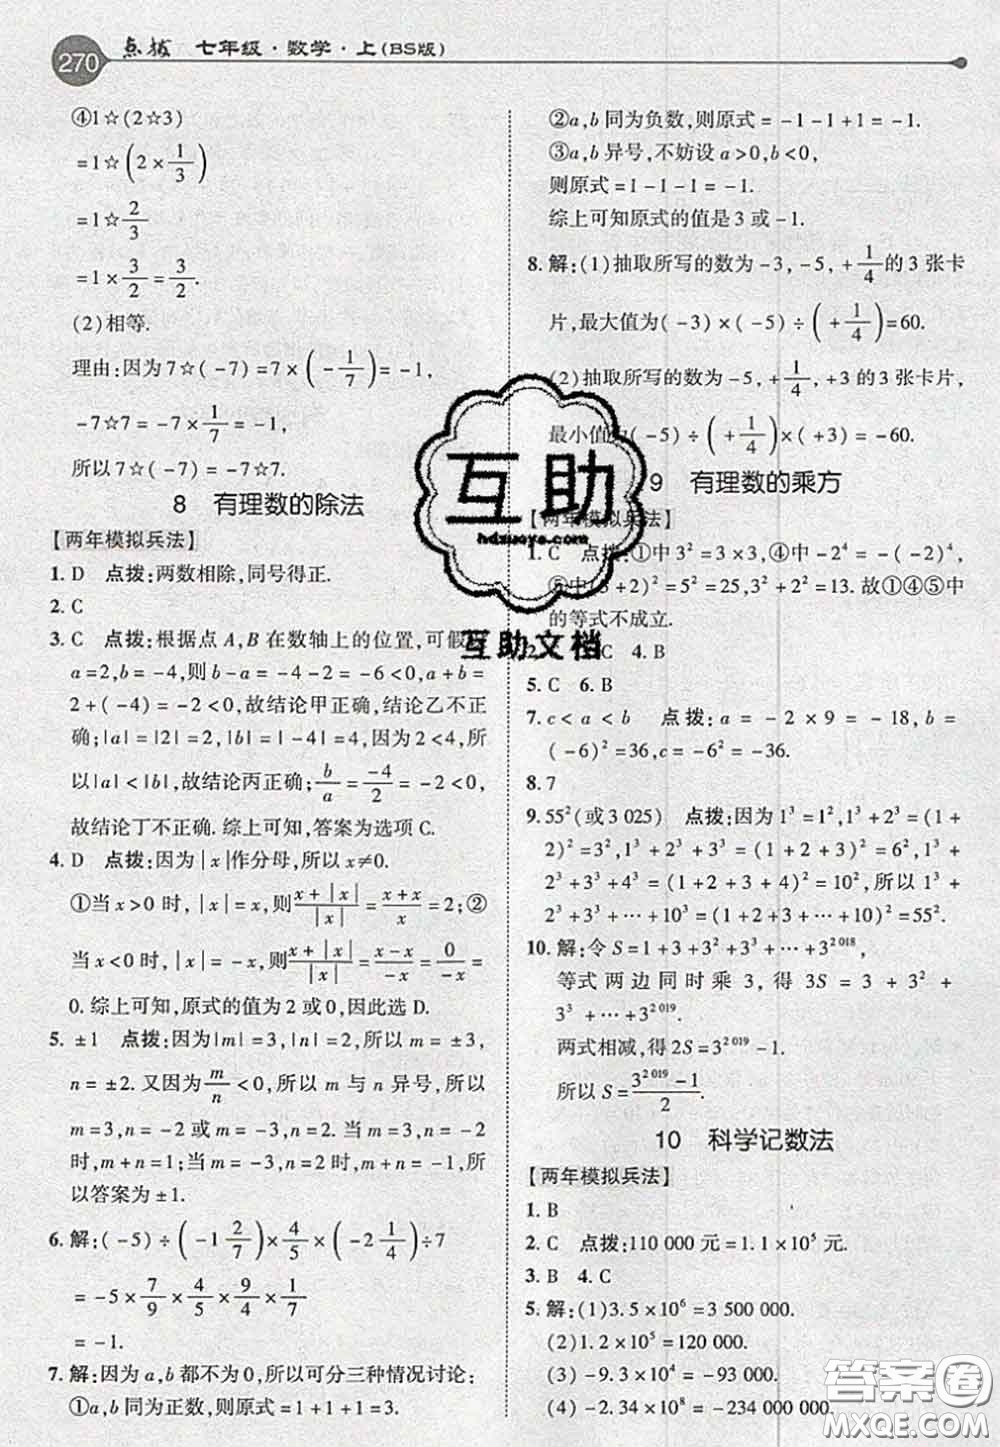 270 点拨 七年级·数学·上(BS版)
④1☆(2☆3)
=1☆(2×1/3)
=1☆2/3
=1×3/2=3/2.
(2)相等.
理由:因为7☆(-7)=7×(-1/7)=-1,
-7☆7=-7×1/7=-1,
所以7☆(-7)=-7☆7.
8 有理数的除法
【两年模拟兵法】
1. D 点拨:两数相除,同号得正.
2. C
3. C 点拨:根据点A,B在数轴上的位置,可假设
a=2,b=-4,则b-a=-4-2=-6<0,a+b=
2+(-4)=-2<0,故结论甲正确,结论乙不正
确;|a|=|2|=2,|b|=|-4|=4,因为2<4,所
以|a|<|b|,故结论丙正确;b/a=-4/2=-2<0,
故结论丁不正确.综上可知,答案为选项C.
4. D 点拨:因为|x|作分母,所以x≠0.
①当x>0时,|x|=x,则(x+|x|)/|x|=(x+x)/x=2;②
当x<0时,|x|=-x,则(x+|x|)/|x|=(x-x)/-x=0/-x=
0.综上可知,原式的值为2或0,因此选D.
5. ±1 点拨:因为|m|=3,|n|=2,所以m=±3,
n=±2.又因为m/n<0,所以m与n异号,所以
m=3,n=-2或m=-3,n=2.当m=3,n=-2
时,m+n=1;当m=-3,n=2时,m+n=-1.所
以答案为±1.
6. 解:(-5)÷(-1 2/7)×4/5×(-2 1/4)÷7
=-5×7/9×4/5×9/4×1/7
=-1.
7. 解:因为a,b都不为0,所以可分三种情况讨论:
①a,b同为正数,则原式=1+1+1=3.
②a,b同为负数,则原式=-1-1+1=-1.
③a,b异号,不妨设a>0,b<0,
则原式=1-1-1=-1.
综上可知原式的值是3或-1.
8. 解:(1)抽取所写的数为-3,-5,+1/4的3张卡
片,最大值为(-3)×(-5)÷(+1/4)=60.
(2)抽取所写的数为-5,+1/4,+3的3张卡片,
最小值为(-5)÷(+1/4)×(+3)=-60.
9 有理数的乘方
【两年模拟兵法】
1. C 点拨:①中3²=3×3,④中-2⁴=-(-2)⁴,
⑤中(3+2)²=5²=25,3²+2²=13.故①④⑤中
的等式不成立.
C 4. B
5. C 6. B
7. c<a<b 点拨:a=-2×9=-18,b=
(-6)²=36,c=-6²=-36.
8. 7
9. 55²(或3 025) 点拨:因为1³=1²,1³+2³=(1+
2)²=3²,1³+2³+3³=(1+2+3)²=6²,1³+
2³+3³+4³=(1+2+3+4)²=10²,所以1³+
2³+3³+…+10³=(1+2+3+…+10)²=55².
10. 解:令S=1+3+3²+3³+…+3²⁰¹⁸,
等式两边同时乘3,得3S=3+3²+
3³+…+3²⁰¹⁹.
两式相减,得2S=3²⁰¹⁹-1.
所以S=(3²⁰¹⁹-1)/2.
10 科学记数法
【两年模拟兵法】
1. B
2. C 点拨:110 000元=1.1×10⁵元.
3. B 4. C
5. 解:(1)3.5×10⁶=3 500 000.
(2)1.2×10⁵=120 000.
(3)-9.3×10⁴=-93 000.
(4)-2.34×10⁸=-234 000 000.
互助
hdzuoye.com
互助文档
答案圈
MXQE.COM